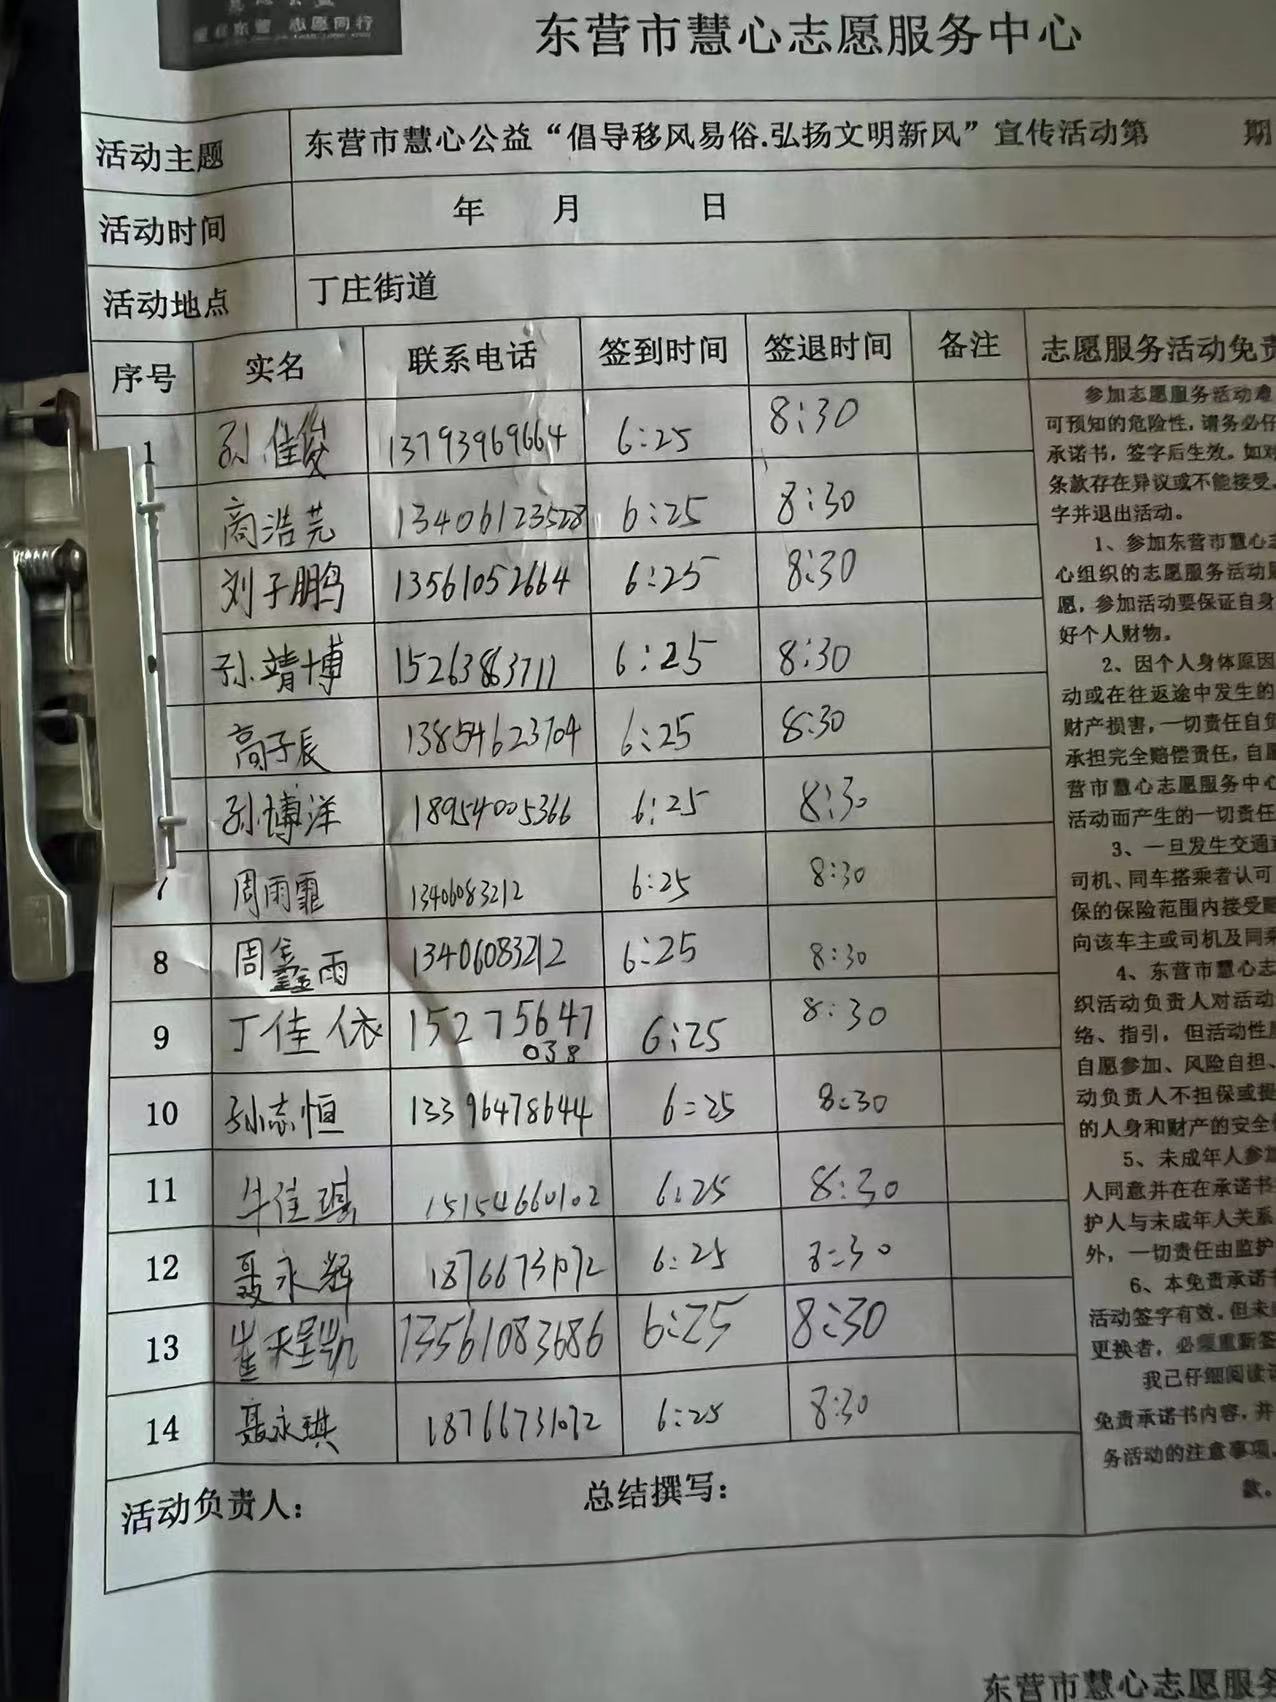 志愿同行
东营市慧心志愿服务中心
活动主题 东营市慧心公益“倡导移风易俗.弘扬文明新风”宣传活动第 期
活动时间 年 月 日
活动地点 丁庄街道
序号 实名 联系电话 签到时间 签退时间 备注 志愿服务活动免责
1 孙佳俊 13793969664 6:25 8:30
商浩芫 13406123528 6:25 8:30
刘子鹏 13561052664 6:25 8:30
孙靖博 15263863711 6:25 8:30
高子辰 13854623704 6:25 8:30
孙博洋 18954005366 6:25 8:30
7 周雨霏 13406083212 6:25 8:30
8 周鑫雨 13406083212 6:25 8:30
9 丁佳依 15275647038 6:25 8:30
10 孙志恒 13396478644 6:25 8:30
11 牛佳琪 15154660102 6:25 8:30
12 聂永辉 18766731072 6:25 8:30
13 崔天星凯 13561083686 6:25 8:30
14 聂永琪 18766731072 6:25 8:30
活动负责人： 总结撰写：
参加志愿服务活动难
可预知的危险性，请务必仔
承诺书，签字后生效。如对
条款存在异议或不能接受，
字并退出活动。
1、参加东营市慧心志
心组织的志愿服务活动属
愿，参加活动要保证自身
好个人财物。
2、因个人身体原因
动或在往返途中发生的
财产损害，一切责任自负
承担完全赔偿责任，自愿
营市慧心志愿服务中心
活动而产生的一切责任
3、一旦发生交通
司机、同车搭乘者认可
保的保险范围内接受赔
向该车主或司机及同乘
4、东营市慧心志
织活动负责人对活动
络、指引，但活动性质
自愿参加、风险自担、
动负责人不担保或提
的人身和财产的安全
5、未成年人参加
人同意并在在承诺书
护人与未成年人关系
外，一切责任由监护
6、本免责承诺书
活动签字有效，但未
更换者，必须重新签
我已仔细阅读
免责承诺书内容，并
务活动的注意事项，
款。
东营市慧心志愿服务